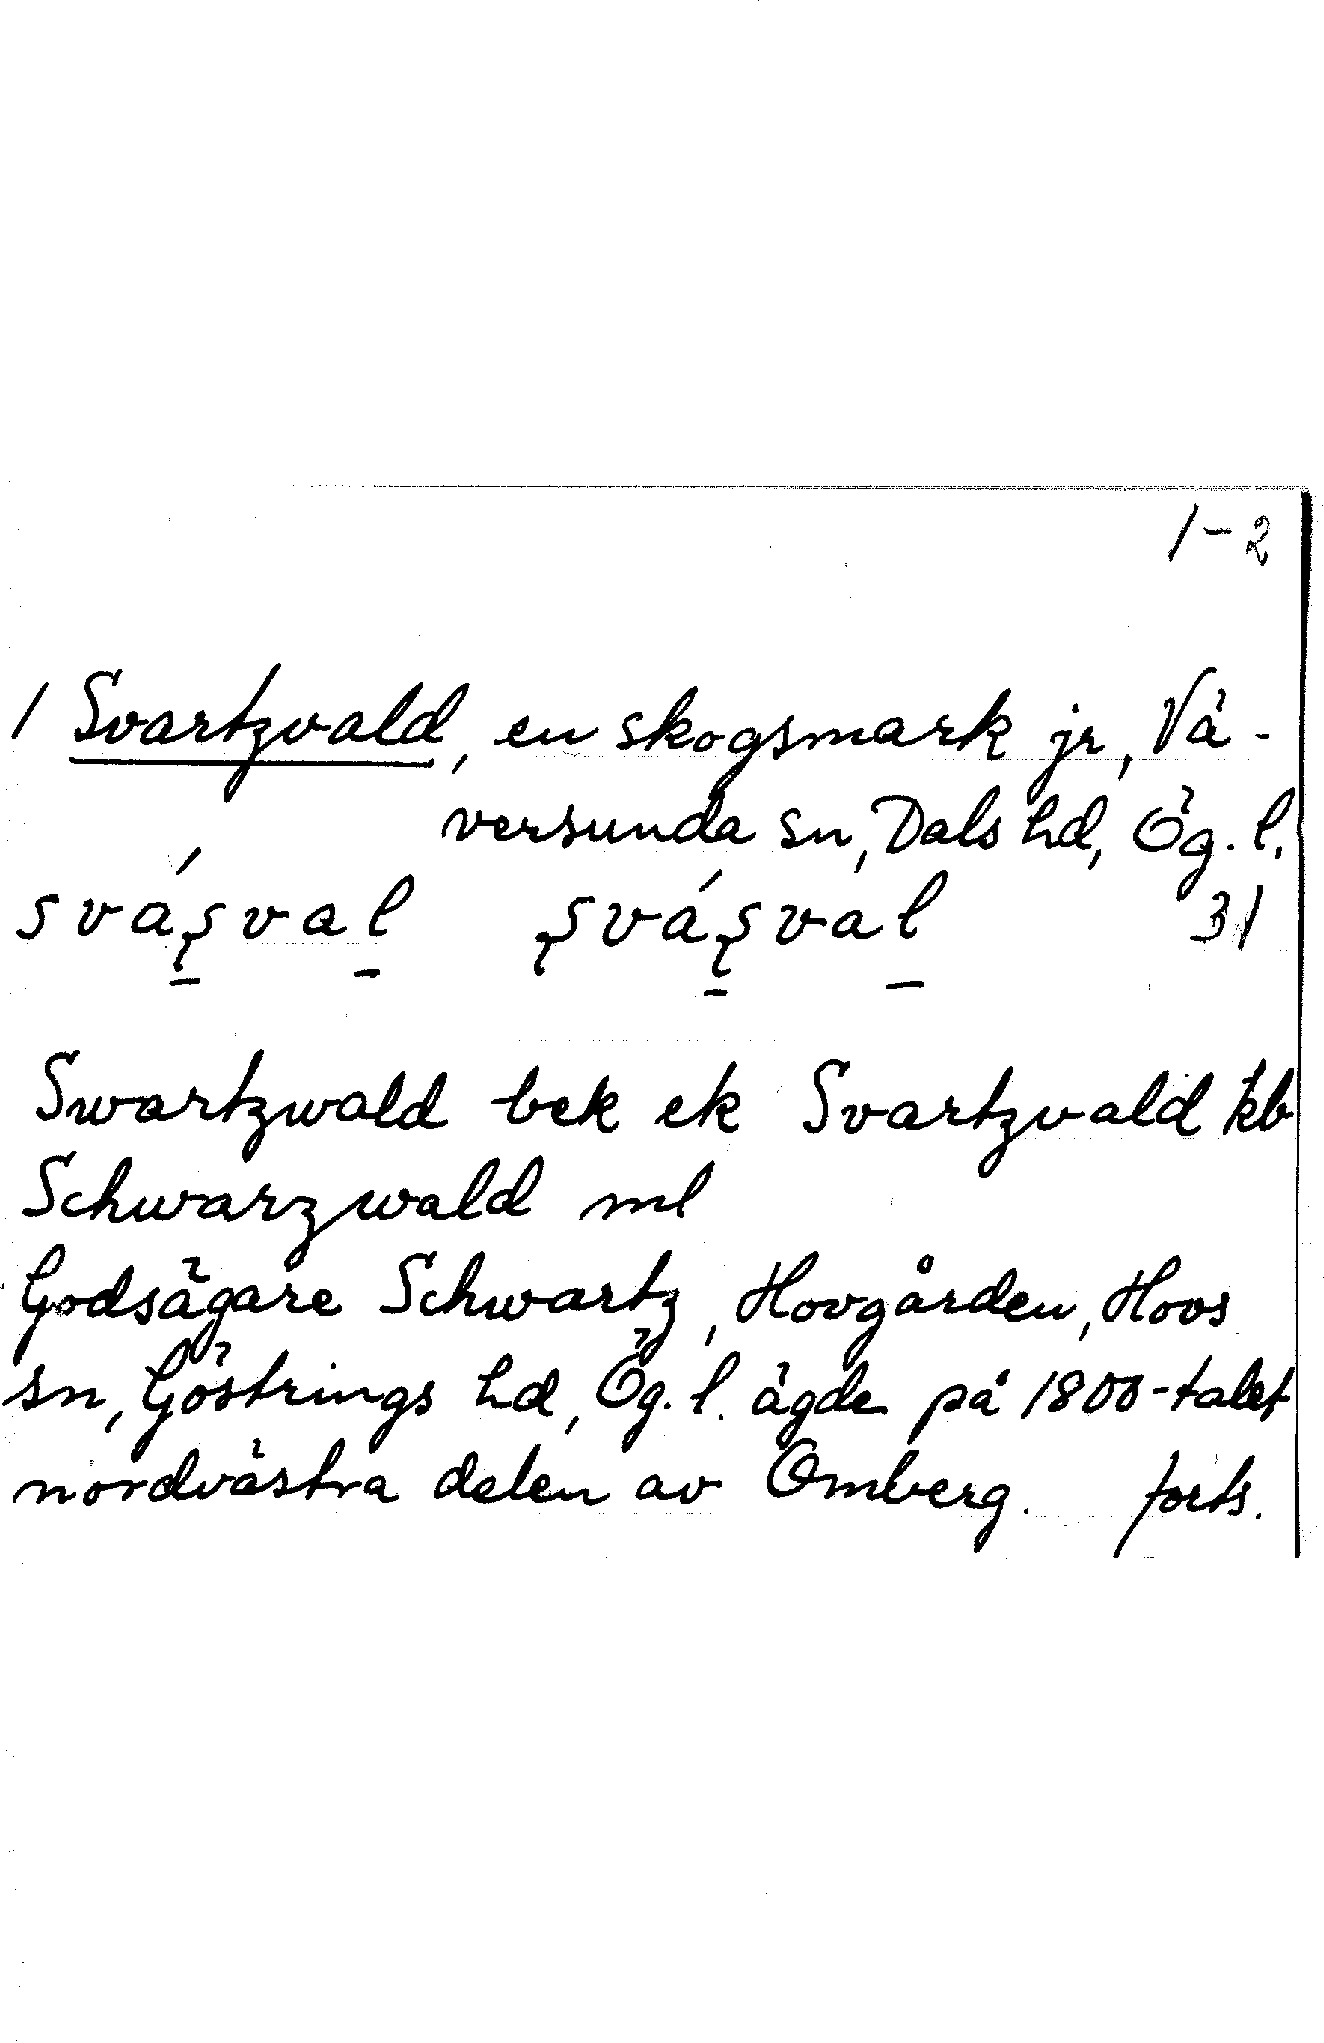 1-2
1 Svartzvald, en skogsmark jr, Vä-
versunda sn, Dals hd, Ög. l.
sváʂval ʂváʂval 31
Swartzwald bek ek Svartzvald kb
Schwarzwald ml
Godsägare Schwartz, Hovgården, Hovs
sn, Göstrings hd, Ög. l. ägde på 1800-talet
nordvästra delen av Omberg. forts.